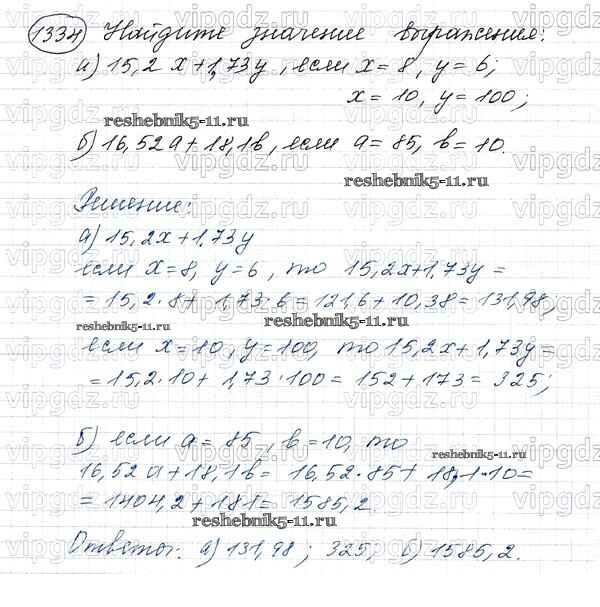 1334 Найдите значение выражения:
а) 15,2x + 1,73y, если x = 8, y = 6;
x = 10, y = 100;
reshebnik5-11.ru
б) 16,52a + 18,1b, если a = 85, b = 10.
reshebnik5-11.ru
Решение:
а) 15,2x + 1,73y
если x = 8, y = 6, то 15,2x + 1,73y =
= 15,2 · 8 + 1,73 · 6 = 121,6 + 10,38 = 131,98,
reshebnik5-11.ru
reshebnik5-11.ru
если x = 10, y = 100, то 15,2x + 1,73y =
= 15,2 · 10 + 1,73 · 100 = 152 + 173 = 325;
б) если a = 85, b = 10, то
reshebnik5-11.ru
16,52a + 18,1b = 16,52 · 85 + 18,1 · 10 =
= 1404,2 + 181 = 1585,2.
reshebnik5-11.ru
Ответы: а) 131,98; 325, б) 1585,2.
vipgdz.ru